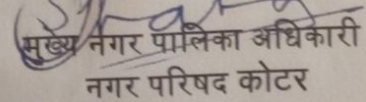 मुख्य नगर पालिका अधिकारी
नगर परिषद कोटर